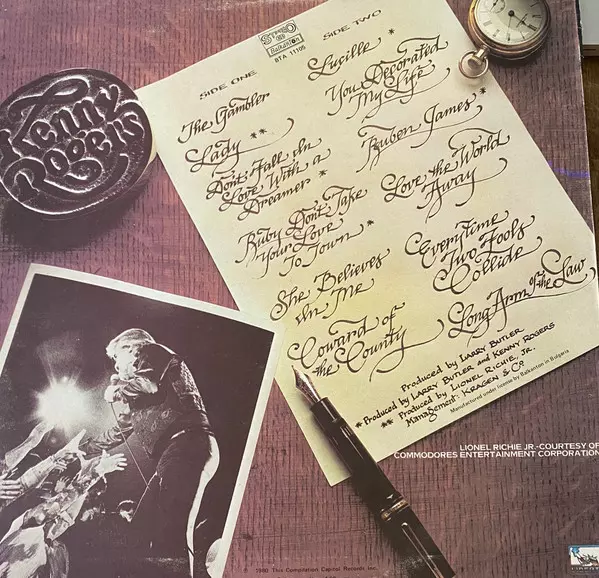 Kenny
Rogers
STEREO
Balkanton
BTA 11105
SIDE ONE
The Gambler
Lady **
Don't Fall In
Love With a
Dreamer *
Ruby Don't Take
Your Love
To Town *
She Believes
In Me
Coward of
the County
SIDE TWO
Lucille *
You Decorated
My Life
Reuben James *
Love the World
Away
Everytime
Two Fools
Collide
Long Arm of the Law
Produced by LARRY BUTLER
* Produced by LARRY BUTLER and KENNY ROGERS
** Produced by LIONEL RICHIE, JR.
Management: KRAGEN & Co.
Manufactured under license by Balkanton in Bulgaria
LIONEL RICHIE JR.-COURTESY OF
COMMODORES ENTERTAINMENT CORPORATION
1980 This Compilation Capitol Records Inc.